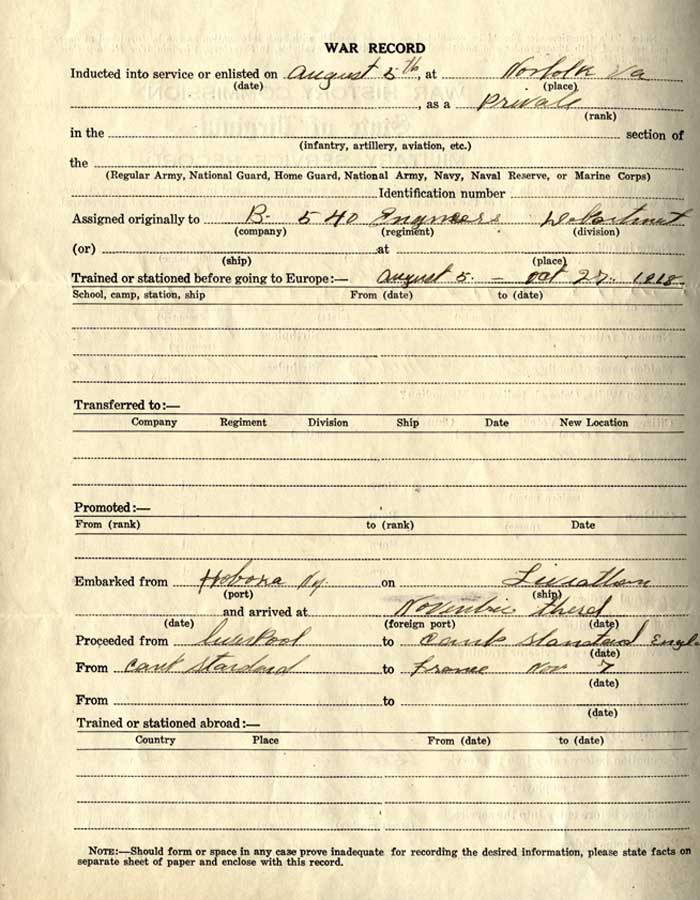 WAR RECORD
Inducted into service or enlisted on August 5th, at Norfolk Va
(date) (place)
, as a Private
(rank)
in the section of
(infantry, artillery, aviation, etc.)
the
(Regular Army, National Guard, Home Guard, National Army, Navy, Naval Reserve, or Marine Corps)
Identification number
Assigned originally to B- 540 Engineers
(company) (regiment) (division)
(or) at
(ship) (place)
Trained or stationed before going to Europe:— August 5. – Oct 27. 1918
School, camp, station, ship From (date) to (date)
Transferred to:—
Company Regiment Division Ship Date New Location
Promoted:—
From (rank) to (rank) Date
Embarked from Hoboxa Ny. on
(port) (ship)
and arrived at
(date) (foreign port) (date)
Proceeded from to Engl
(date)
From to Nov 7
(date)
From to
(date)
Trained or stationed abroad:—
Country Place From (date) to (date)
NOTE:—Should form or space in any case prove inadequate for recording the desired information, please state facts on
separate sheet of paper and enclose with this record.